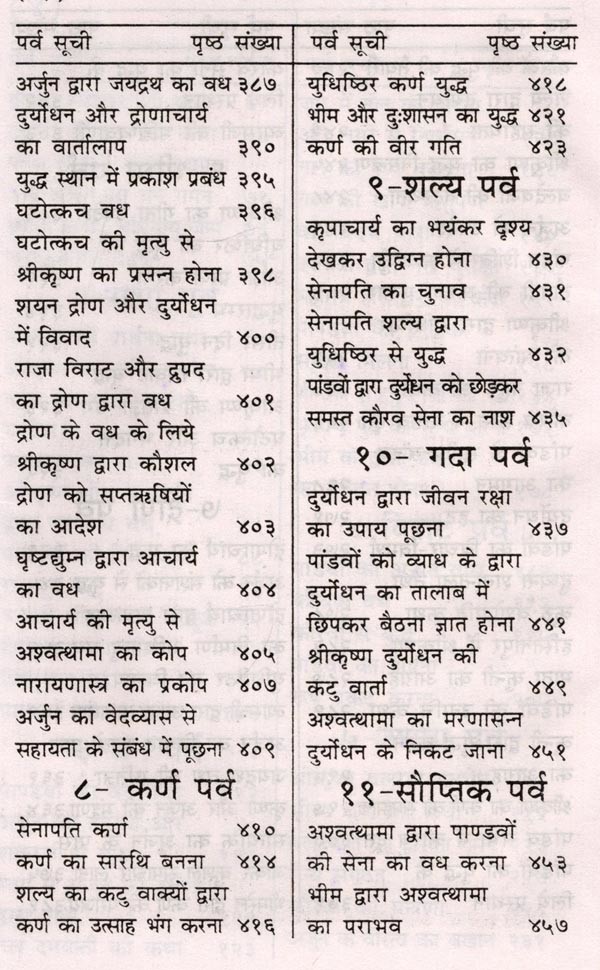 पर्व सूची पृष्ठ संख्या
अर्जुन द्वारा जयद्रथ का वध ३८७
दुर्योधन और द्रोणाचार्य
का वार्तालाप ३९०
युद्ध स्थान में प्रकाश प्रबंध ३९५
घटोत्कच वध ३९६
घटोत्कच की मृत्यु से
श्रीकृष्ण का प्रसन्न होना ३९८
शयन द्रोण और दुर्योधन
में विवाद ४००
राजा विराट और द्रुपद
का द्रोण द्वारा वध ४०१
द्रोण के वध के लिये
श्रीकृष्ण द्वारा कौशल ४०२
द्रोण को सप्तऋषियों
का आदेश ४०३
धृष्टद्युम्न द्वारा आचार्य
का वध ४०४
आचार्य की मृत्यु से
अश्वत्थामा का कोप ४०५
नारायणास्त्र का प्रकोप ४०७
अर्जुन का वेदव्यास से
सहायता के संबंध में पूछना ४०९
८- कर्ण पर्व
सेनापति कर्ण ४१०
कर्ण का सारथि बनना ४१४
शल्य का कटु वाक्यों द्वारा
कर्ण का उत्साह भंग करना ४१६
पर्व सूची पृष्ठ संख्या
युधिष्ठिर कर्ण युद्ध ४१८
भीम और दुःशासन का युद्ध ४२१
कर्ण की वीर गति ४२३
९-शल्य पर्व
कृपाचार्य का भयंकर दृश्य
देखकर उद्विग्न होना ४३०
सेनापति का चुनाव ४३१
सेनापति शल्य द्वारा
युधिष्ठिर से युद्ध ४३२
पांडवों द्वारा दुर्योधन को छोड़कर
समस्त कौरव सेना का नाश ४३५
१०- गदा पर्व
दुर्योधन द्वारा जीवन रक्षा
का उपाय पूछना ४३७
पांडवों को व्याध के द्वारा
दुर्योधन का तालाब में
छिपकर बैठना ज्ञात होना ४४१
श्रीकृष्ण दुर्योधन की
कटु वार्ता ४४९
अश्वत्थामा का मरणासन्न
दुर्योधन के निकट जाना ४५१
११-सौप्तिक पर्व
अश्वत्थामा द्वारा पाण्डवों
की सेना का वध करना ४५३
भीम द्वारा अश्वत्थामा
का पराभव ४५७